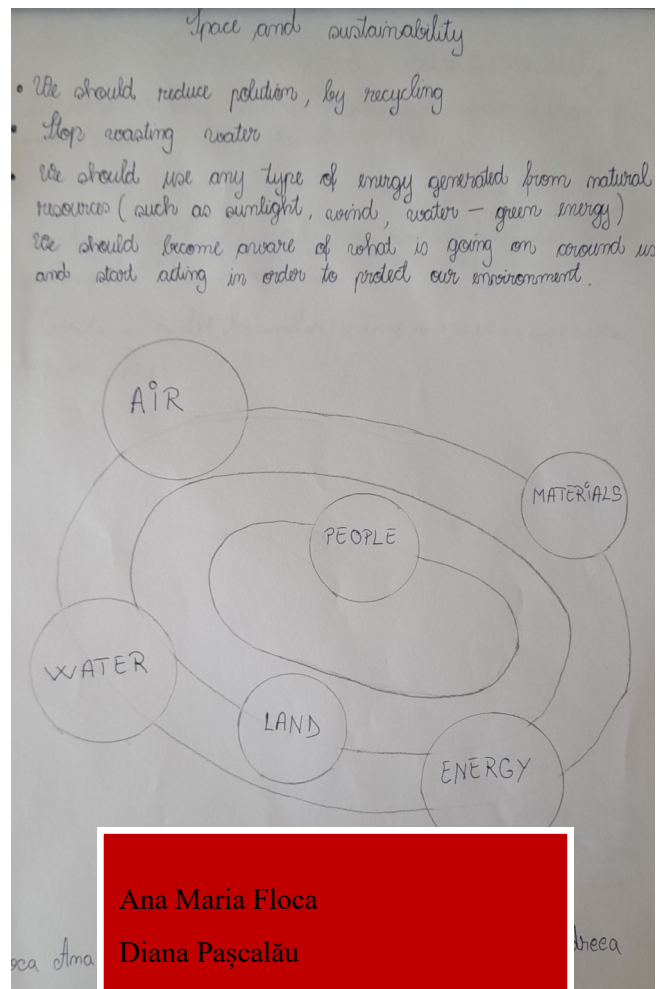 Space and sustainability
• We should reduce polution, by recycling
• Stop wasting water
• We should use any type of energy generated from natural
resources (such as sunlight, wind, water – green energy)
We should become aware of what is going on around us
and start acting in order to protect our environment.
AIR
MATERIALS
PEOPLE
WATER
LAND
ENERGY
Ana Maria Floca
Diana Pașcalău
oca Ama
dreea